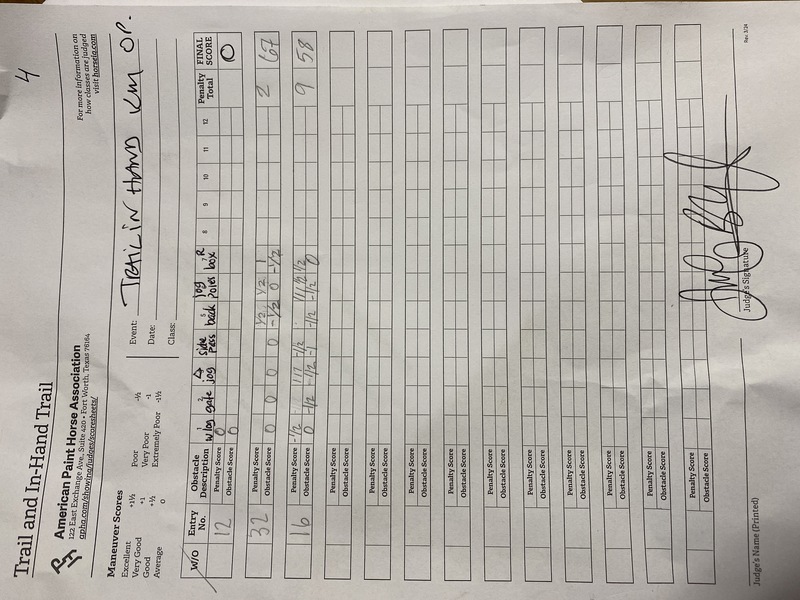 Trail and In-Hand Trail
4
American Paint Horse Association
122 East Exchange Ave, Suite 420 • Fort Worth, Texas 76164
apha.com/showing/judges/scoresheets/
For more information on
how classes are judged
visit horseia.com
Maneuver Scores
Excellent +1½ Poor -½
Very Good +1 Very Poor -1
Good +½ Extremely Poor -1½
Average 0
Event: TRAIL IN HAND
Date:
Class:
W/O Entry No. Obstacle Description 1 wlog 2 gate jog 4 side pass 5 back jog poles 7 box R 8 9 10 11 12 Penalty Total FINAL SCORE
12 Penalty Score 0 0
Obstacle Score 0
32 Penalty Score 1/2 1/2 1 2 67
Obstacle Score 0 0 0 0 -1/2 0 -1/2
16 Penalty Score 9 58
Obstacle Score 0 -1/2 -1/2 -1 -1/2 -1/2 0
Penalty Score
Obstacle Score
Penalty Score
Obstacle Score
Penalty Score
Obstacle Score
Penalty Score
Obstacle Score
Penalty Score
Obstacle Score
Penalty Score
Obstacle Score
Penalty Score
Obstacle Score
Penalty Score
Obstacle Score
Penalty Score
Obstacle Score
Penalty Score
Obstacle Score
Judge's Name (Printed)
Judge's Signature
Rev. 3/24